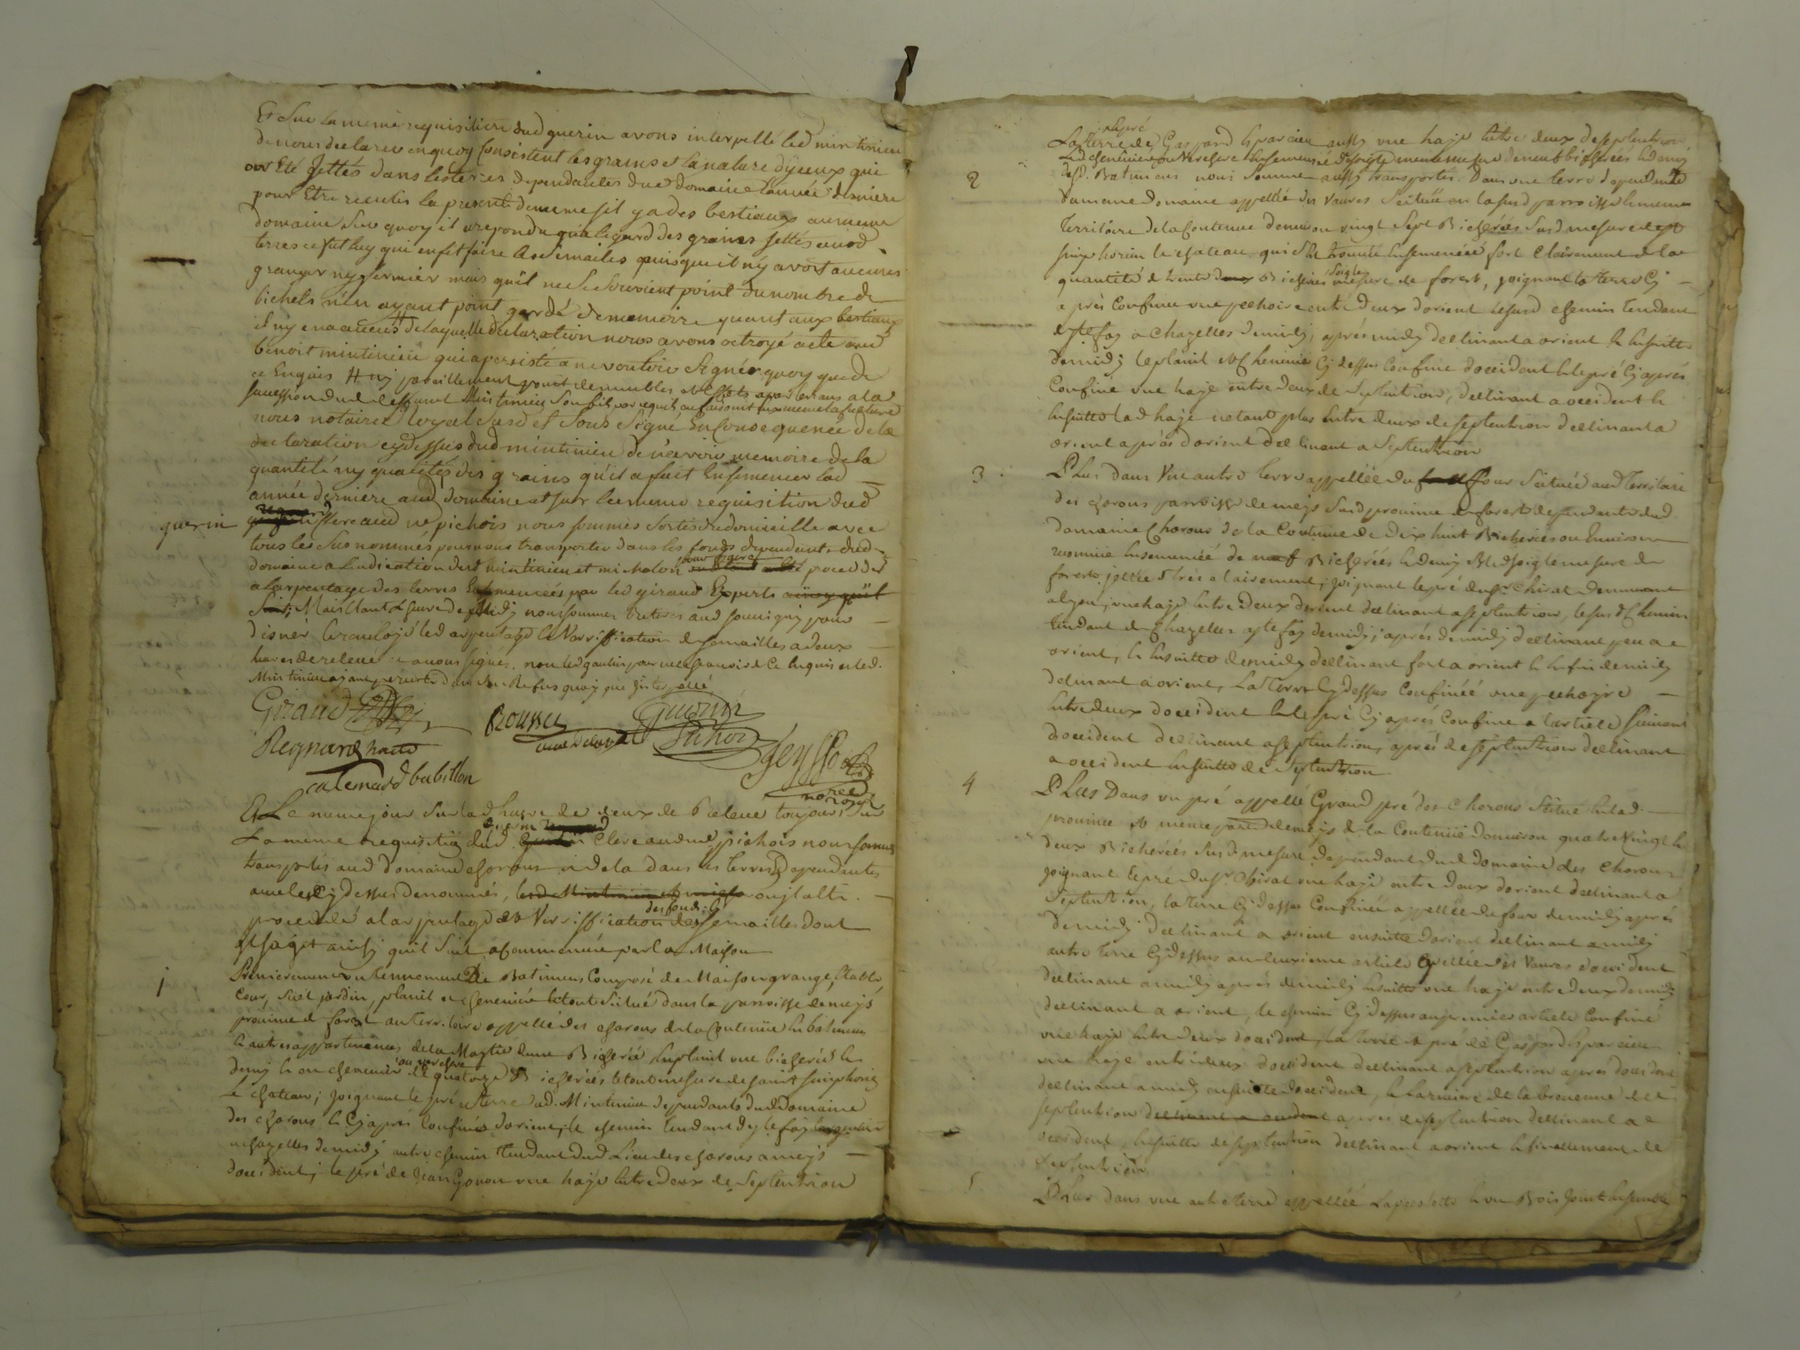 Et Sur la meme requisition dud guerin avons interpellé led mintinieu
de nous declarer en quoy Consistent les grains et la nature d'yceux qui
ont Eté Jettés dans les terres dependantes du domaine l'année derniere
pour Etre recultis la presente de meme sil y a des bestiaux au meme
domaine Sur quoy il a repondu qu'a l'egard des grains Jettés aud
terres ce fut luy qui en fit faire les Semailes puisque il n'y avoit aucuns
granger ny fermier mais qu'il ne Se Souvient point du nombre de
bichets n'en ayant point gardé de memoire quant aux bestiaux
il n'y en a aucuns de laquelle declaration nous avons octroyé acte aud
benoit mintinieu qui a persisté a ne vouloir Signér quoy que de
ce Enquis ny pareillement point de meubles
succession
nous notaire Royal Susd et Sous Signé En Consequence de la
declaration cy dessus dud mintinieu de n'avoir memoire de la
quantité ny qualités des grains qu'il a fait Ensemencer lad
année derniére aud domaine et sur la meme requisition dud
guerin Clereaud ne pichois nous sommes Sortis du domicille avec
tous les Sus nommés pour nous transporter dans les fonds dependants dud
domaine a L'indication dud mintinieu et michalon pour proceder
a l'arpentage des terres Ensemencées par led giraud Experts
Mais Etant L'heure de Midy nous sommes Retirés aud pour
disner Renvoyé led arpentage Et Verification de semailles a deux
heures de relevé et avons signés, non led gautin pour ne le sçavoir de Ce Enquis et led.
Mintinieu ayant persisté dans son Refus quoy que interpellé
Giraud
Rousset
Guerin
Regnard
Duhoi
Seyssel
calemard babillon
not. Royal
Et Le meme jour Sur lad heure de deux de Relevé toujours Sur
La meme requisition dud guerin Clereaud ne pichois nous sommes
transportés aud domaine chorous et de la dans les terres dependantes
avec les Cy dessus denommés, led Mintinieu
procedé a l'arpentage et Verification des fonds et Semailles dont
il s'agit ainsy quil Suit a Commencée par la Maison
1
Premierement un tennement de Batimens Composé de Maison grange, Etable
Cour, Suel, jardin, plantil et cheneviére le tout Situé dans la parroisse de meys
province de forest au territoire appellé des chorous de la Contenüe En batimens
Et autres appartenances de la Moytié d'une Bicherée En plantil une bicherée Et
demy Et en chenevier ou verchere de quatorze Bicherées le tout mesure de saint simphorien
le chateau; joignant le pré et terre dud. Mintinieu dependants dud Domaine
des chorous Et Cy aprés Confinés d'orient; le chemin tendant d'yzfay
a chazelles de midy autre chemin tendant dud Lieu des chorous a meys
d'occident; le pré de Jean Gonon une haye Entre deux de Septentrion
La Terre et le pré de Gaspard Sparcieu aussy une haye Entre deux de septentrion
2
desd. Batimens nous Sommes aussy transportés. Dans une terre dependante
du meme domaine appellée des Vaures Scituée en la susd parroisse Et meme
Territoire de la Contenue d'environ vingt Sept Bicherées Susd mesure de st
simphorien le chateau, qui s'Est trouvée Ensemencée fort Clairement de la
quantité de trente Bichets Soigle mesure de forest, joignant la terre Cy
aprés Confinée une pechoire entre deux d'orient le susd chemin tendant
d'yzfay a Chazelles de midy, aprés midy declinant a orient Et Ensuitte
de midy le plantil et Chenevier Cy dessus Confiné d'occident Et le pré Cy aprés
Confiné une haye entre deux de Septentrion, declinant a occident Et
Ensuitte lad haye n'etant plus Entre deux de septentrion declinant a
orient aprés d'orient declinant a Septentrion
3
Plus dans Une autre terre appellée du four Scituée aud Territoire
des chorous parroisse de meys Susd province de forest dependante dud
domaine Chorous de la Contenue de Dix huit Bicherées ou Environ
reconnüe Ensemencée de neuf Bicherées Et Demy Bled Soigle mesure de
forest, jettée trés clairement; joignant le pré du Sr. Chirat demeurant
a Lyon, une haye Entre deux d'orient declinant a septentrion, le susd Chemin
tendant de Chazelles a yzfay de midy; aprés de midy declinant peu a
orient, Et Ensuitte de midy declinant fort a orient Et Enfin de midy
declinant a orient, La Terre Cy dessus Confinéé une pechoire
Entre deux d'occident Et le pré Cy aprés Confiné a l'article suivant
d'occident declinant a septentrion, aprés de septentrion declinant
a occident Ensuitte de Septentrion
4
Plus Dans un pré appellé Grand pré des Chorous Scitué En lad.
province et meme parroisse de meys de la Contenue d'environ quatre Vingt Et
deux Bicherées Susd. mesure dependant dud Domaine des Chorous
joignant le pré du Sr. Chirat une haye entre deux d'orient declinant a
Septentrion, la terre Cy dessus Confinée appellée du four de midy aprés
de midy declinant a orient ensuitte d'orient declinant a midy
autre terre Cy dessus au deuxieme article appellée des Vaures d'occident
declinant a midy aprés de midy Ensuitte une haye entre deux de midy
declinant a orient, le chemin Cy dessus au premier article Confiné
une haye Entre deux d'occident, la terre et pré de Gaspard Sparcieu
une haye entre deux d'occident declinant a septentrion aprés d'occident
declinant a midy ensuitte d'occident, Et la riviere de la brevenne de
septentrion declinant a occident aprés de septentrion declinant a
occident, Ensuitte de septentrion declinant a orient Et finallement de
Septentrion
5
Plus dans une autre terre appellée Et un Bois Joint Ensemble